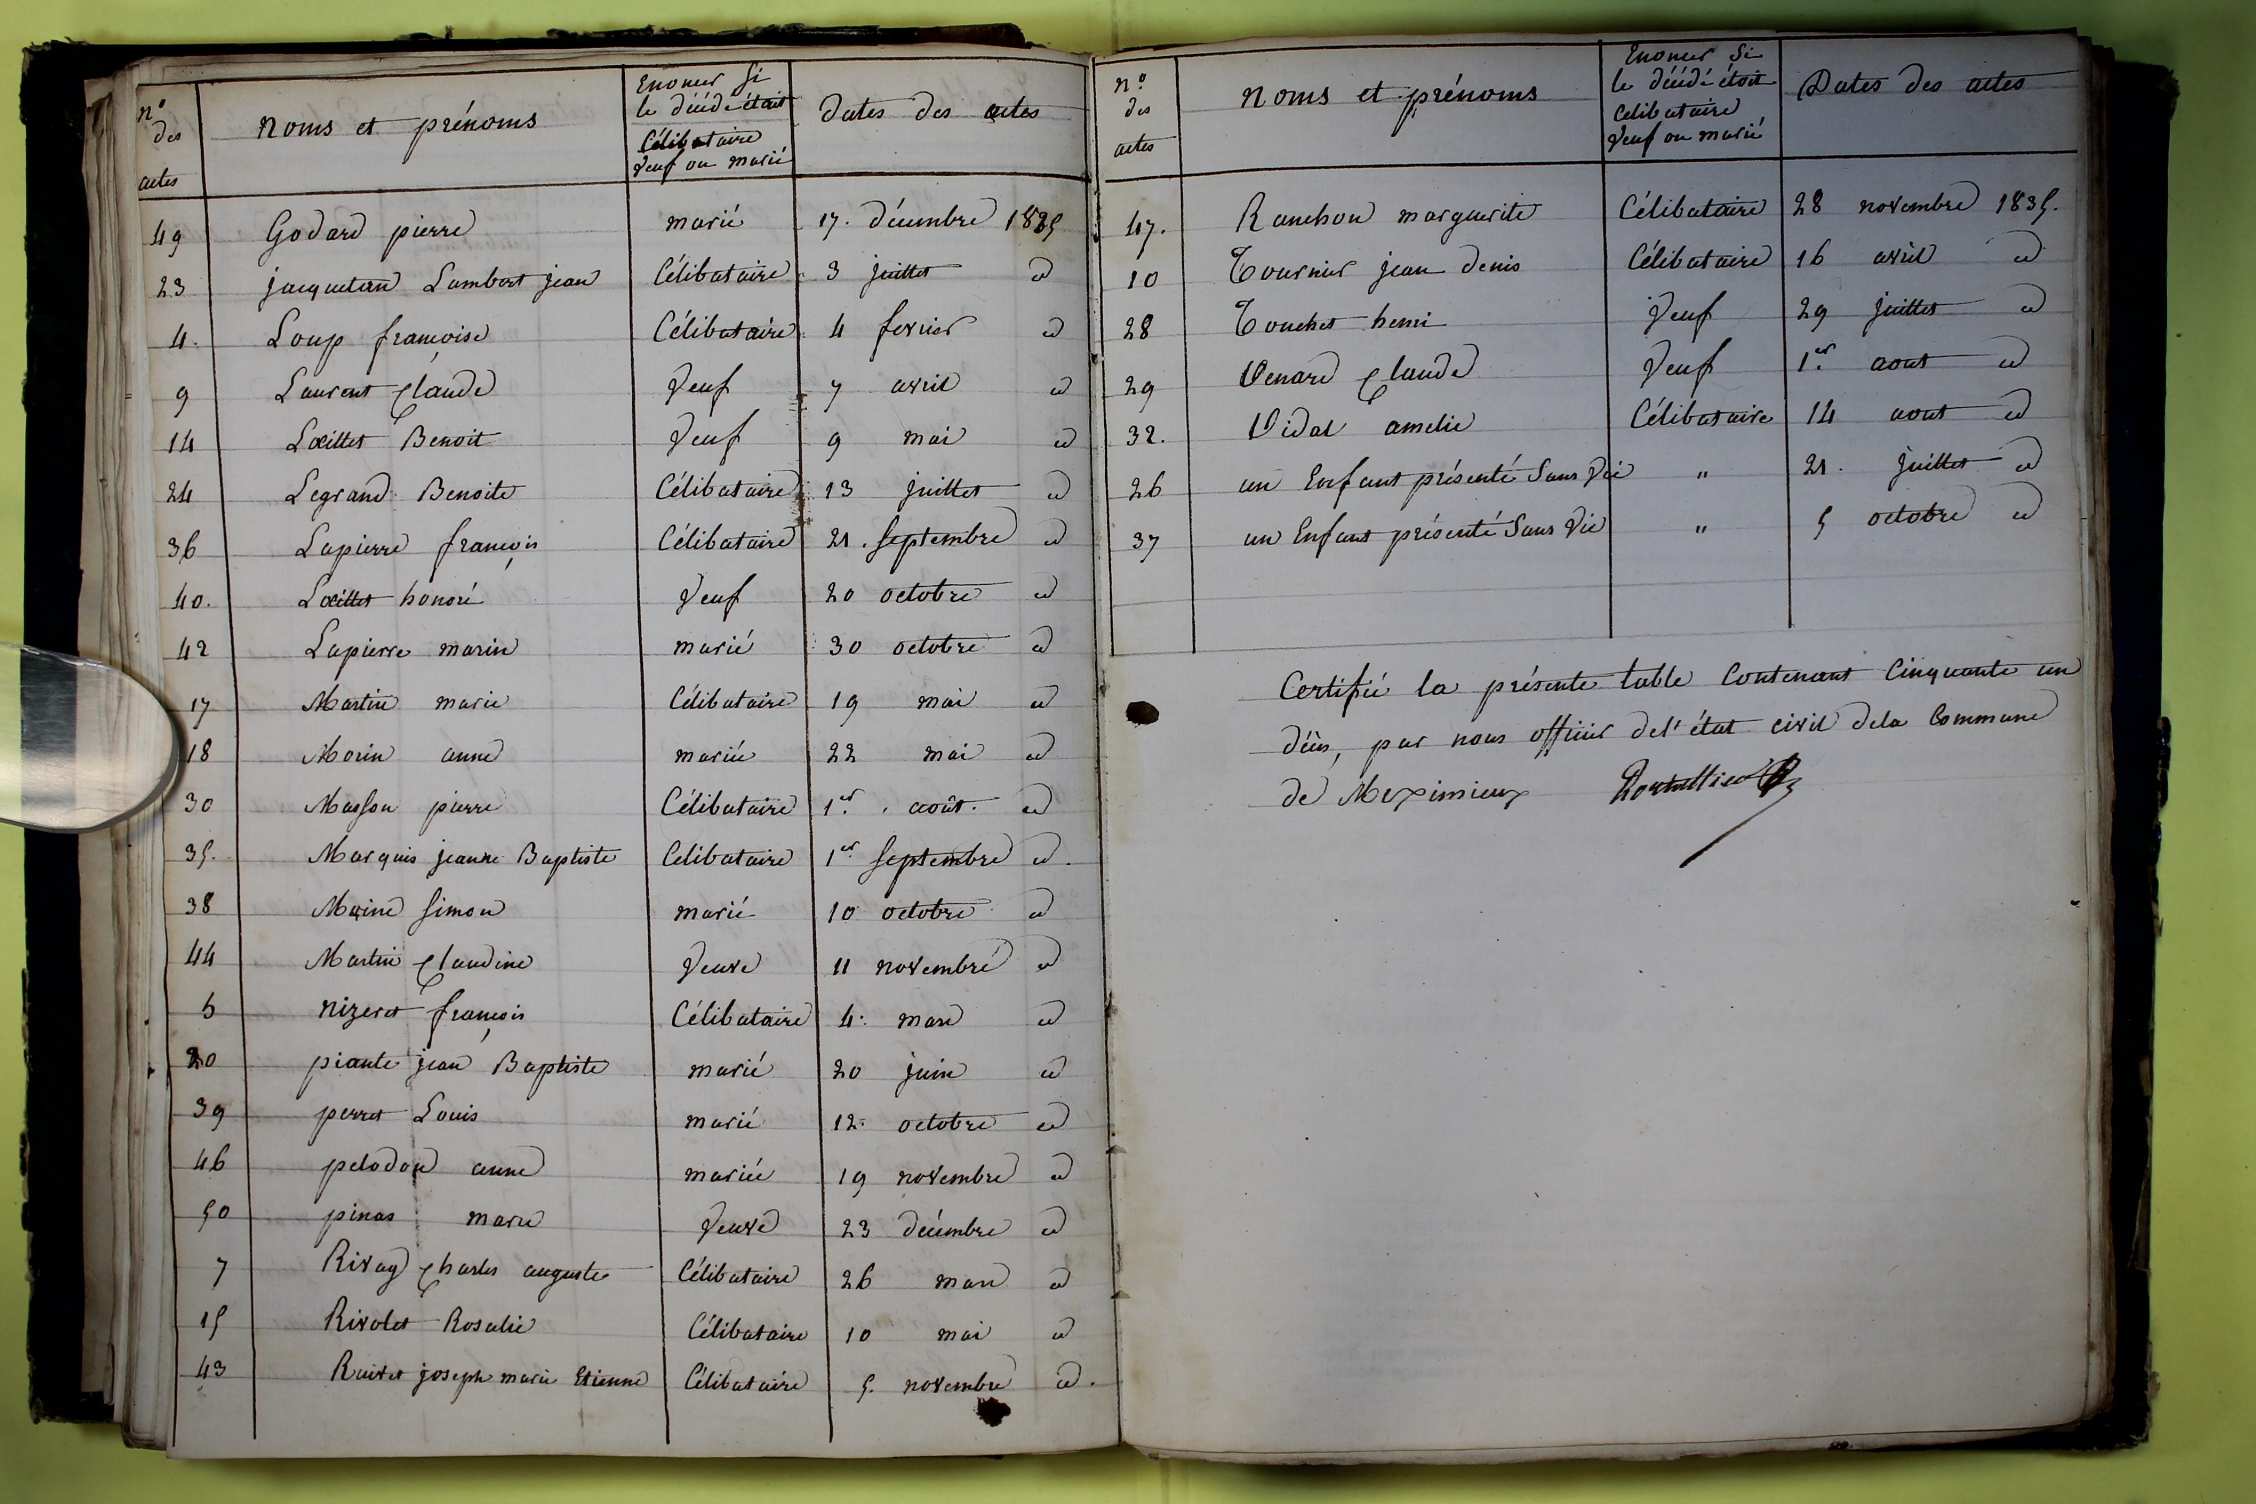 nº des actes noms et prénoms Enoncer Si le décédé était Célibataire Veuf ou marié Dates des actes
49 Godard pierre marié 17. décembre 1835
23 jacquetan Lambert jean Célibataire 3 juillet id
4. Loup françoise Célibataire 4 fevrier id
9 Laurent Claude Veuf 7 avril id
14 Lœillet Benoit Veuf 9 mai id
24 Legrand Benoite Célibataire 13 juillet id
36 Lapierre françois Célibataire 21. Septembre id
40. Lœillet honoré Veuf 20 octobre id
42 Lapierre marin marié 30 octobre id
17 Martin marie Célibataire 19 mai id
18 Morin anne mariée 22 mai id
30 Masson pierre Célibataire 1er. août. id
35. Marquis jeanne Baptiste Celibataire 1er Septembre id.
38 Moine Simon marié 10 octobre id
44 Martin Claudine Veuve 11 novembre id
5 nizeret françois Célibataire 4. mars id
20 piante jean Baptiste marié 20 juin id
39 perret Louis marié 12 octobre id
46 pelodon anne mariée 19 novembre id
50 pinas marie Veuve 23 décembre id
7 Rivay Charles auguste Célibataire 26 mars id
15 Rivolet Rosalie Célibataire 10 mai id
43 Ruivet joseph marie Etienne Célibataire 5. novembre id.
nº. des actes noms et prénoms Enoncer Si le décédé étoit Celibataire Veuf ou marié Dates des actes
47. Ranchon marguerite Célibataire 28 novembre 1835.
10 Tournier jean denis Célibataire 16 avril id
28 Touchet henri Veuf 29 juillet id
29 Venard Claude Veuf 1er. aout id
32. Vidal amelie Célibataire 14 aout id
26 un Enfant présenté Sans Vie " 21. juillet id
37 un Enfant présenté Sans Vie " 5 octobre id
Certifié la présente table Contenant Cinquante un
décès, par nous officier de l'état civil dela Commune
de Meximieux